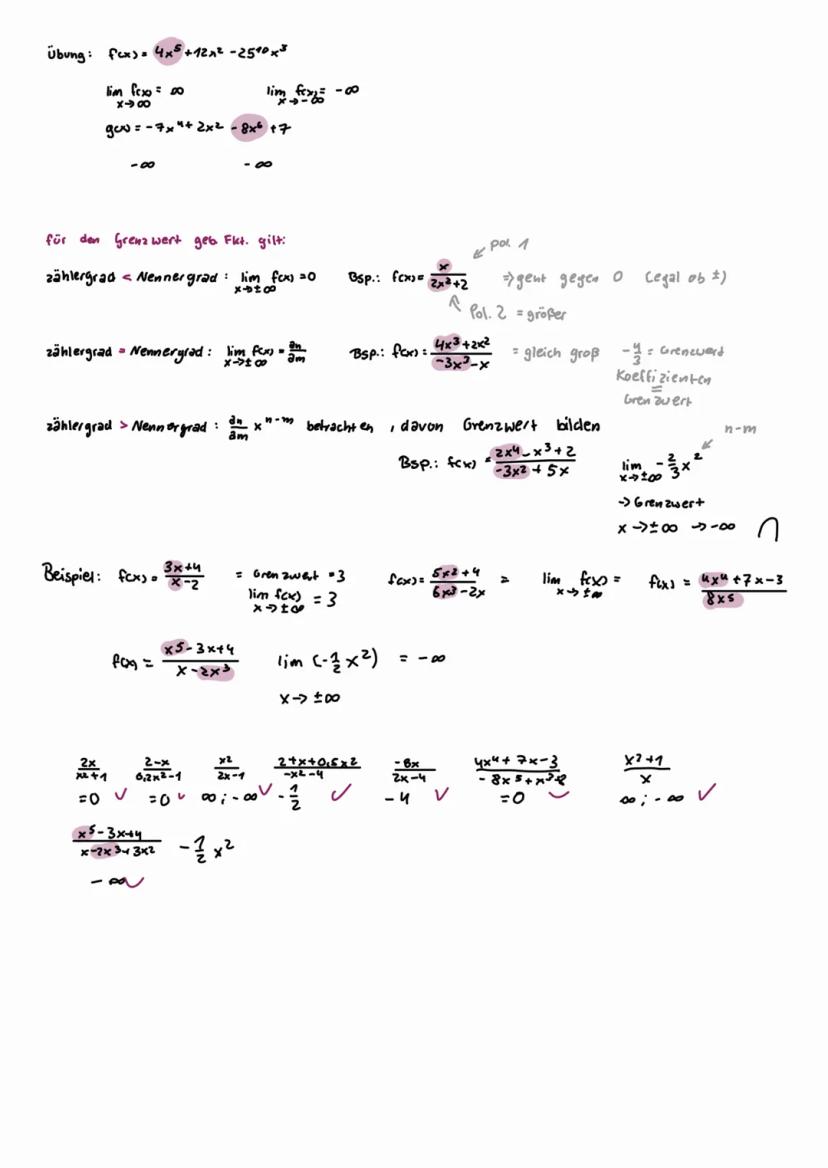 Übung: f(x) = 4x⁵ + 12x² - 25¹⁰x³
lim f(x) = ∞ lim f(x) = -∞
x→∞ x→-∞
g(x) = -7x⁴ + 2x² - 8x⁶ + 7
-∞ -∞
für den Grenzwert geb Fkt. gilt:
Pol. 1
zählergrad < Nennergrad : lim f(x) = 0 Bsp.: f(x) = x/(2x²+2) ⇒ geht gegen 0 (egal ob ±)
x→±∞
Pol. 2 = größer
zählergrad = Nennergrad : lim f(x) = an/am Bsp.: f(x) = (4x³+2x²)/(-3x³-x) = gleich groß -4/3 = Grenzwert
x→±∞
Koeffizienten
=
Grenzwert
zählergrad > Nennergrad : an/am x^(n-m) betrachten , davon Grenzwert bilden
n-m
Bsp.: f(x) = (2x⁴-x³+2)/(-3x²+5x) lim -2/3 x²
x→±∞
→ Grenzwert
x→±∞ → -∞
Beispiel: f(x) = (3x+4)/(x-2) = Grenzwert = 3 f(x) = (5x²+4)/(6x³-2x) = lim f(x) = f(x) = (4x⁴+7x-3)/(8x⁵)
lim f(x) = 3 x→±∞
x→±∞
f(x) = (x⁵-3x+4)/(x-2x³) lim (-1/2 x²) = -∞
x→±∞
2x/(x²+1) (2-x)/(0,2x²-1) x²/(2x-1) (2+x+0,5x²)/(-x²-4) -8x/(2x-4) (4x⁴+7x-3)/(-8x⁵+x³-8) (x²+1)/x
=0 ✓ =0 ✓ ∞ ; -∞ ✓ -1/2 ✓ -4 ✓ =0 ✓ ∞ ; -∞ ✓
(x⁵-3x+4)/(x-2x³+3x²) -1/2 x²
-∞ ✓